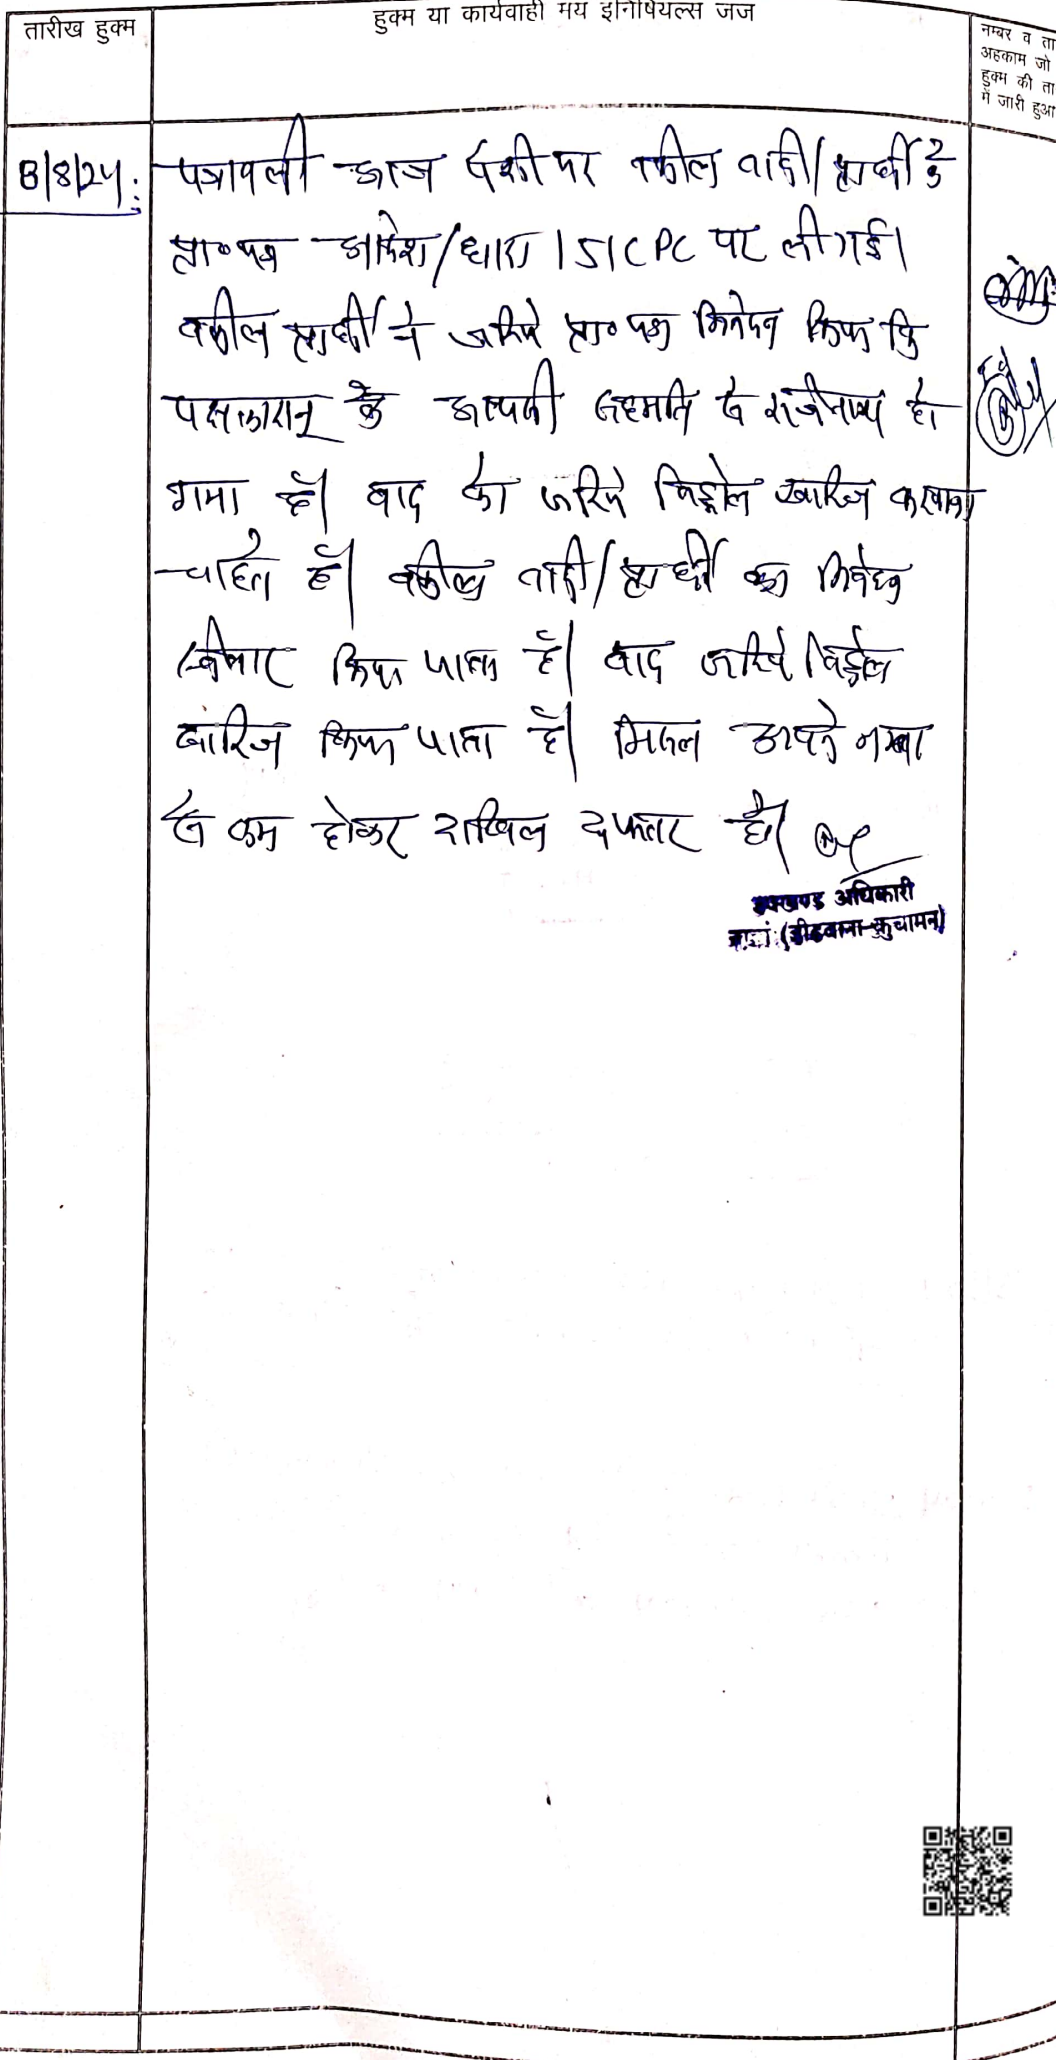 तारीख हुक्म
हुक्म या कार्यवाही मय इनिषियल्स जज
नम्बर व ता
अहकाम जो
हुक्म की ता
में जारी हुआ
8/8/24:
पत्रावली आज पेशी पर वकील वादी/प्रार्थी के
प्रा०पत्र आदेश/धारा 151CPC पर ली गई।
वकील प्रार्थी ने जरिये प्रा०पत्र निवेदन किया कि
पक्षकारान् के आपसी सहमति से राजीनामा हो
गया है। वाद को जरिये विड्रोल खारिज करवाना
चाहते है। वकील वादी/प्रार्थी का निवेदन
स्वीकार किया जाता है। वाद जरिये विड्रोल
खारिज किया जाता है। मिसल अपने नम्बर
से कम होकर दाखिल दफ्तर हो।
उपखण्ड अधिकारी
(डीडवाना-कुचामन)